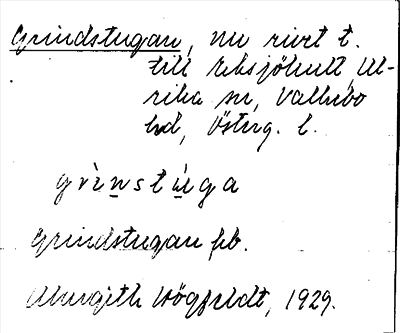 Grindstugan, nu rivet t.
till Eksjöhult, Ul-
rika sn, Valkebo
hd, Östergötl.
grìnstùga
Grindstugan fb.
Margith Högfeldt, 1929.